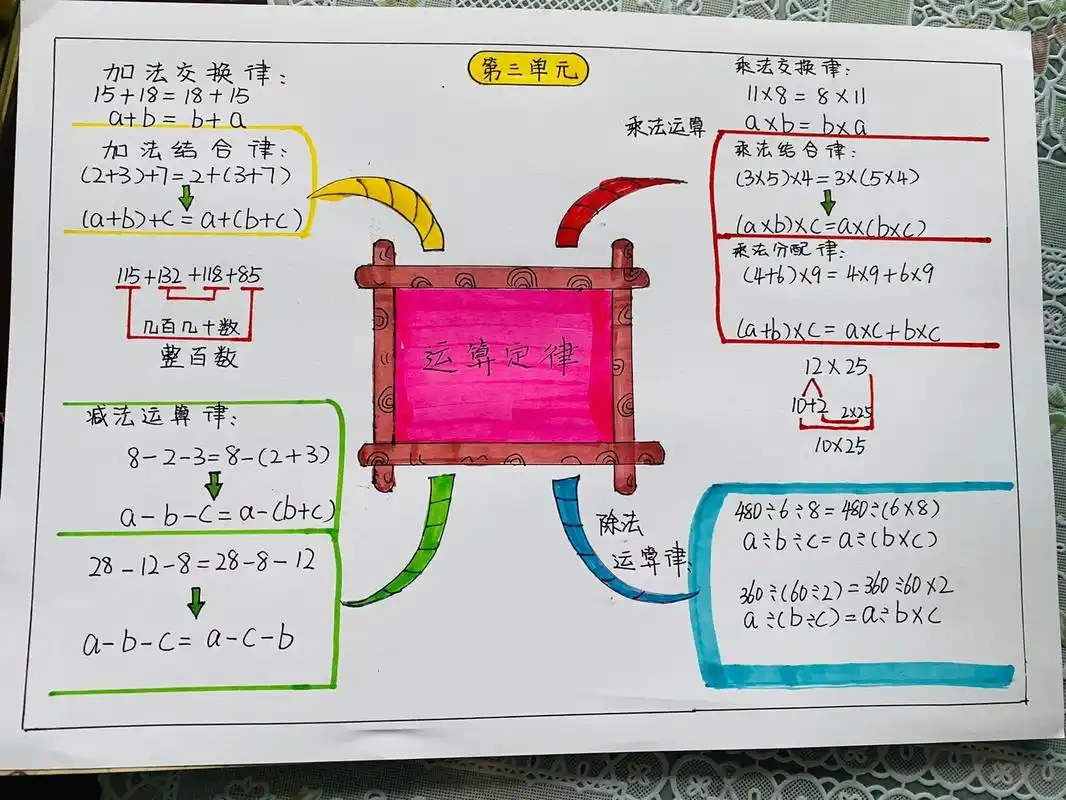 第三单元
加法交换律:
15+18=18+15
a+b=b+a
加法结合律:
(2+3)+7=2+(3+7)
(a+b)+c=a+(b+c)
115+132+118+85
几百几十数
整百数
减法运算律:
8-2-3=8-(2+3)
a-b-c=a-(b+c)
28-12-8=28-8-12
a-b-c=a-c-b
运算定律
乘法运算
乘法交换律:
11×8=8×11
a×b=b×a
乘法结合律:
(3×5)×4=3×(5×4)
(a×b)×c=a×(b×c)
乘法分配律:
(4+6)×9=4×9+6×9
(a+b)×c=a×c+b×c
12×25
10+2 2×25
10×25
除法
运算律:
480÷6÷8=480÷(6×8)
a÷b÷c=a÷(b×c)
360÷(60÷2)=360÷60×2
a÷(b÷c)=a÷b×c